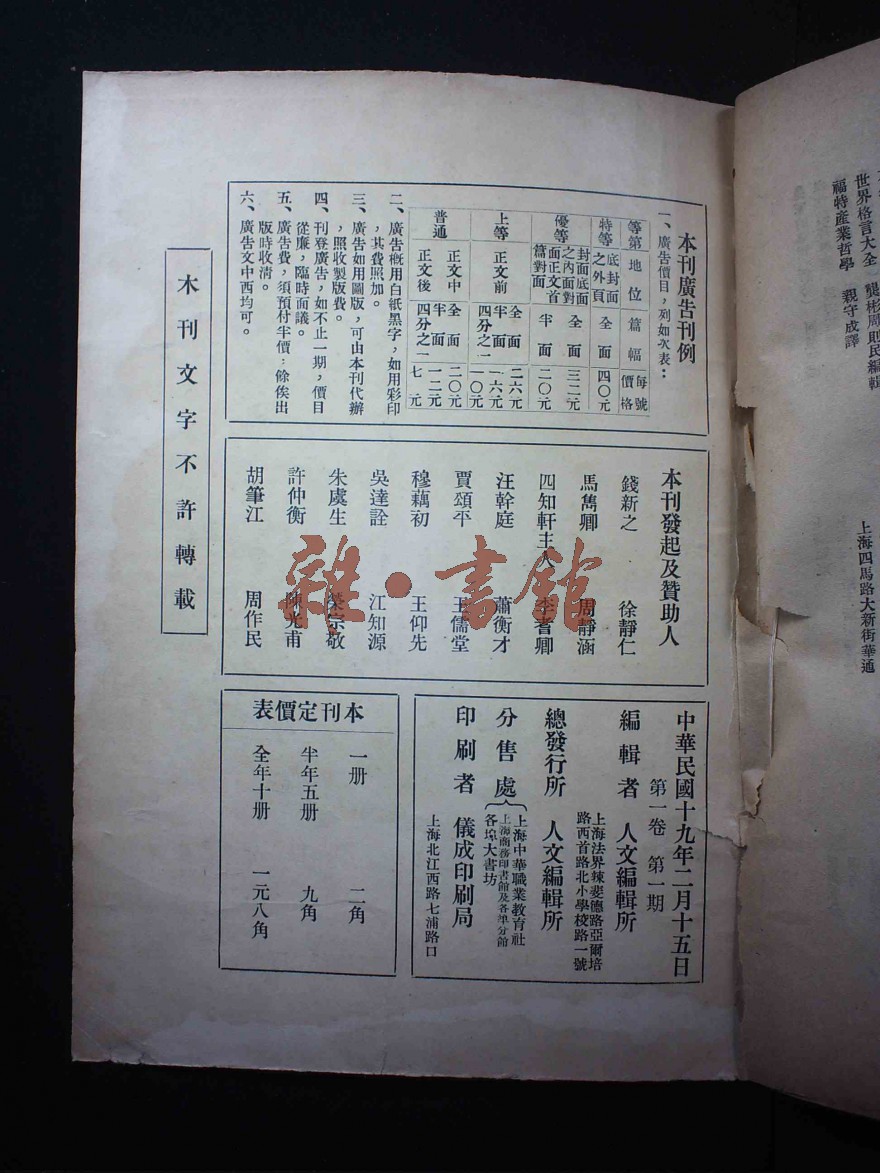 本刊廣告刊例
一、廣告價目，列如次表：
等第 地位 篇幅 每號價格
特等 底封面之外頁 全面 四〇元
優等 封面底面之內面對面正文首篇對面 全面 三二元
半面 二〇元
上等 正文前 全面 二六元
半面 一六元
四分之一 一〇元
普通 正文中 正文後 全面 二〇元
半面 一二元
四分之一 七元
二、廣告概用白紙黑字，如用彩印
，其費照加。
三、廣告如用圖版，可由本刊代辦
，照收製版費。
四、刊登廣告，如不止一期，價目
從廉，臨時面議。
五、廣告費，須預付半價，餘俟出
版時收清。
六、廣告文中西均可。
本刊發起及贊助人
錢新之 徐靜仁
馬雋卿 周靜涵
四知軒主人 李耆卿
汪幹庭 蕭衡才
賈頌平 王儒堂
穆藕初 王仰先
吳達詮 江知源
朱虞生 榮宗敬
許仲衡 陳光甫
胡筆江 周作民
中華民國十九年二月十五日
第一卷 第一期
編輯者 人文編輯所
上海法界辣斐德路亞爾培
路西首路北小學校路一號
總發行所 人文編輯所
分售處
上海中華職業教育社
上海商務印書館及各埠分館
各埠大書坊
印刷者 儀成印刷局
上海北江西路七浦路口
本刊定價表
一册 二角
半年五册 九角
全年十册 一元八角
本刊文字不許轉載
世界格言大全 龔彬周則民編輯
福特產業哲學 親守成譯
上海四馬路大新街華通
雜·書館